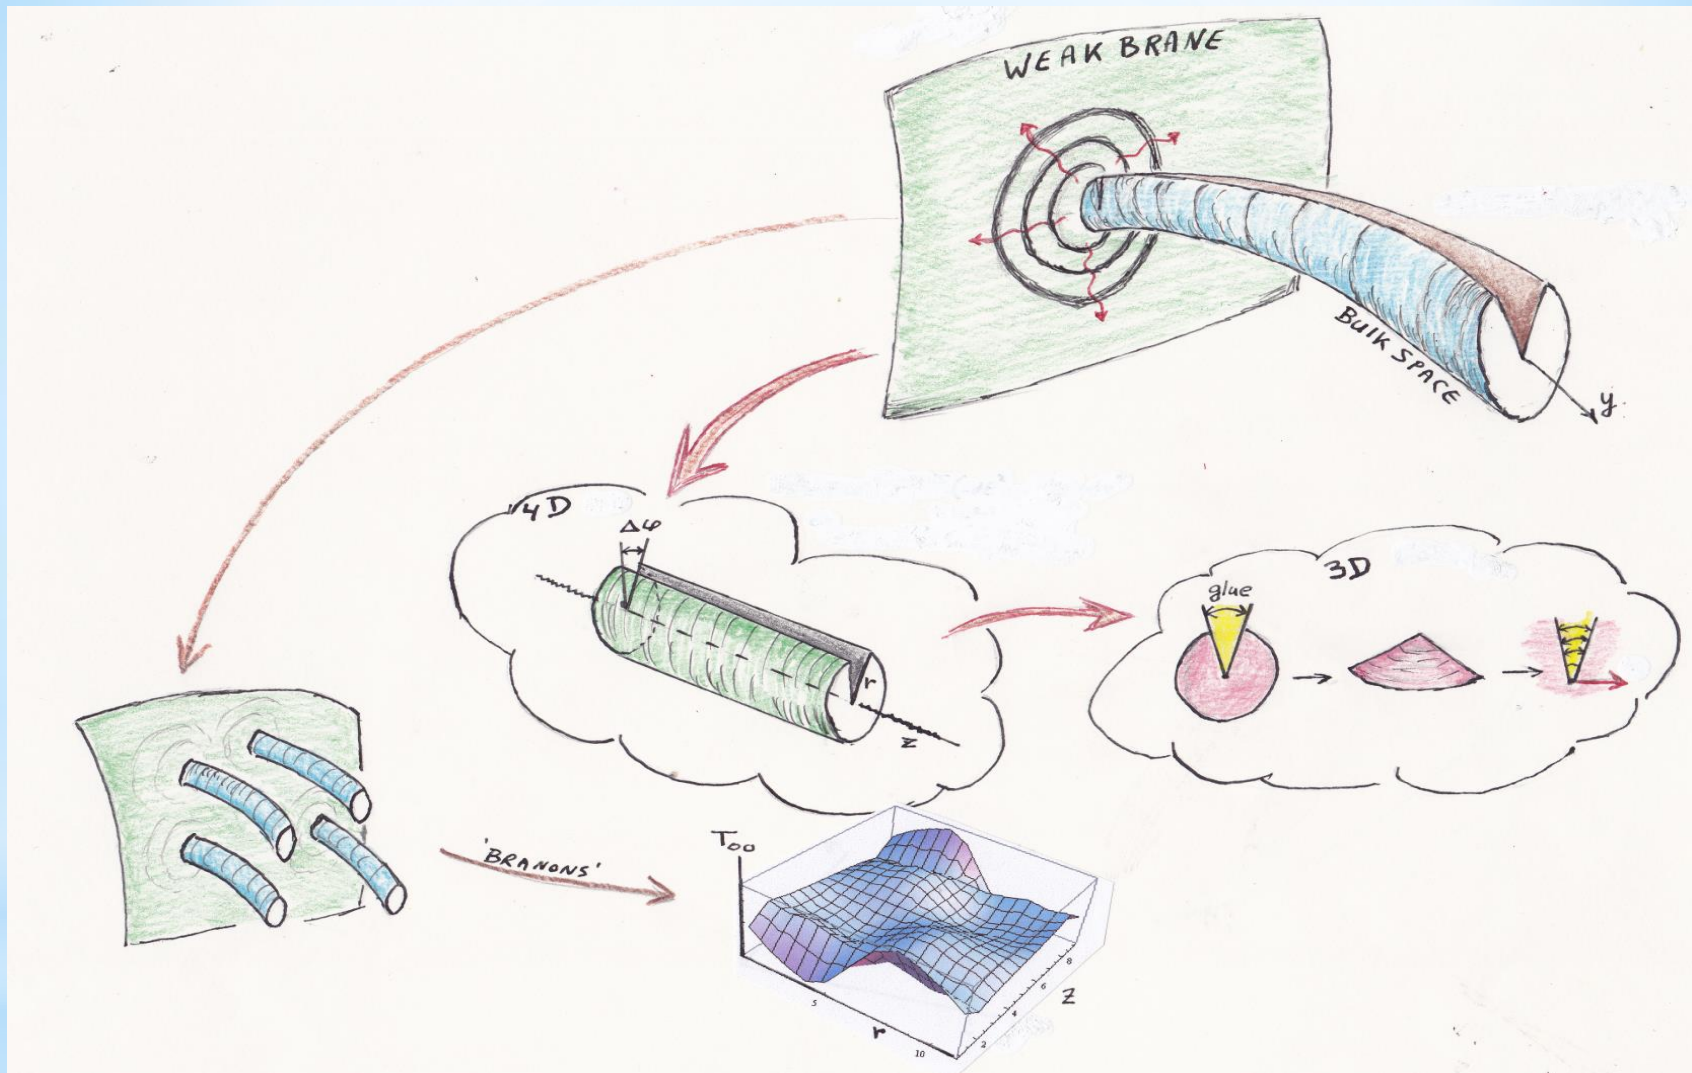 WEAK BRANE
BULK SPACE
y
4D
Δφ
r
z
3D
glue
'BRANONS'
T₀₀
5
10
r
2
4
6
8
z